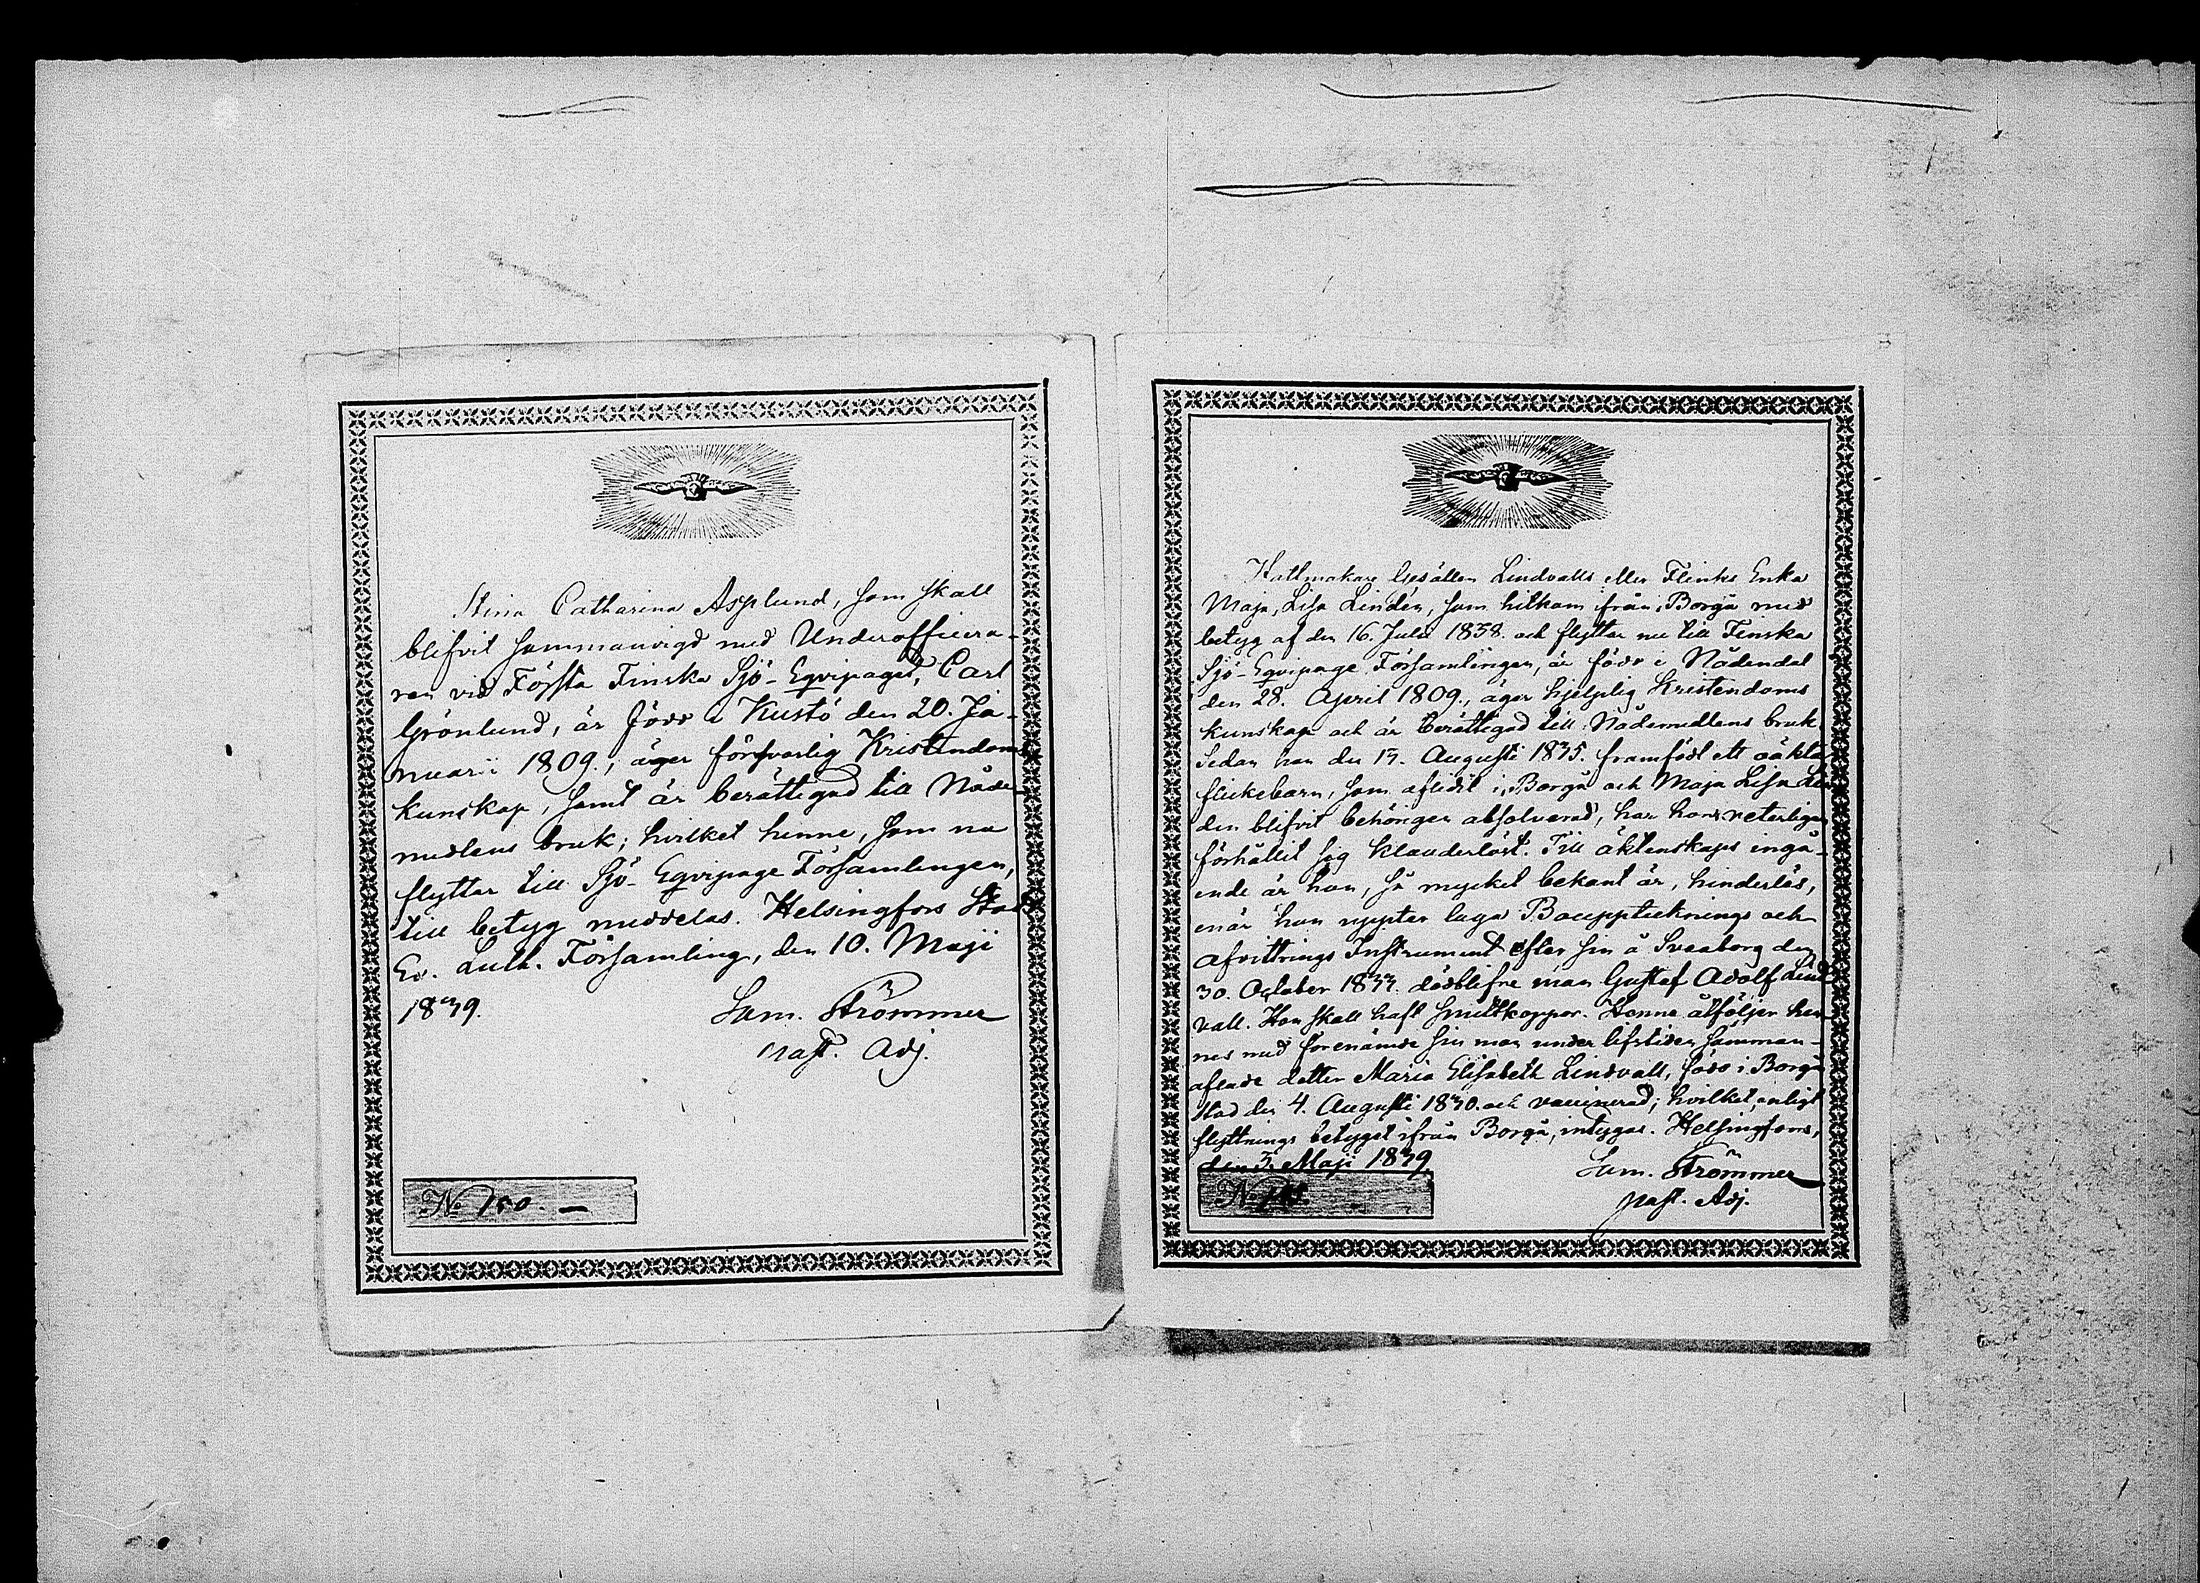 Stina Catharina Asplund, som skall
blifvit sammanvigd med Underofficera-
ren vid Första Finska Sjö-Eqvipaget, Carl
Grönlund, är född i Kustö den 20. Ja-
nuarii 1809., äger försvarlig Kristendoms
kunskap, samt är berättigad till Nåde-
medlens bruk; hvilket henne, som nu
flyttar till Sjö-Eqvipage Församlingen,
till betyg meddelas. Helsingfors Stads
Ev. Luth. Församling, den 10. Maji
1839.
Sam. Strömmer
Past. Adj.
No 150. —
Hattmakare Gesällen Lindvalls eller Flinks Enka
Maja Lisa Lindén, som hitkom från Borgå med
betyg af den 16. Julii 1838. och flyttar nu till Finska
Sjö-Eqvipage Församlingen, är född i Nådendal
den 28. April 1809., äger hjelplig Kristendoms
kunskap och är berättigad till Nådemedlens bruk.
Sedan hon den 13. Augusti 1835. framfödt ett oäkta
flickebarn, som aflidit i Borgå och Maja Lisa Lin
den blifvit behörigen absolverad, har hon veterligen
förhållit sig klanderlöst. Till äktenskaps ingå-
ende är hon, så mycket bekant är, hinderlös,
enär hon uppter laga Bouppteknings och
afvittrings Instrument efter sin å Sveaborg den
30. October 1833. dödblifne man Gustaf Adolf Lind
vall. Hon skall haft Smittkoppor. Henne åtföljer hen
nes med förenämde sin man under lifstiden samman-
aflade dotter Maria Elisabeth Lindvall, född i Borgå
stad den 4. Augusti 1830. och vaccinerad; hvilket, enligt
flyttnings betyget ifrån Borgå, intygas. Helsingfors,
den 3. Maji 1839.
Sam. Strömmer
Past. Adj.
No